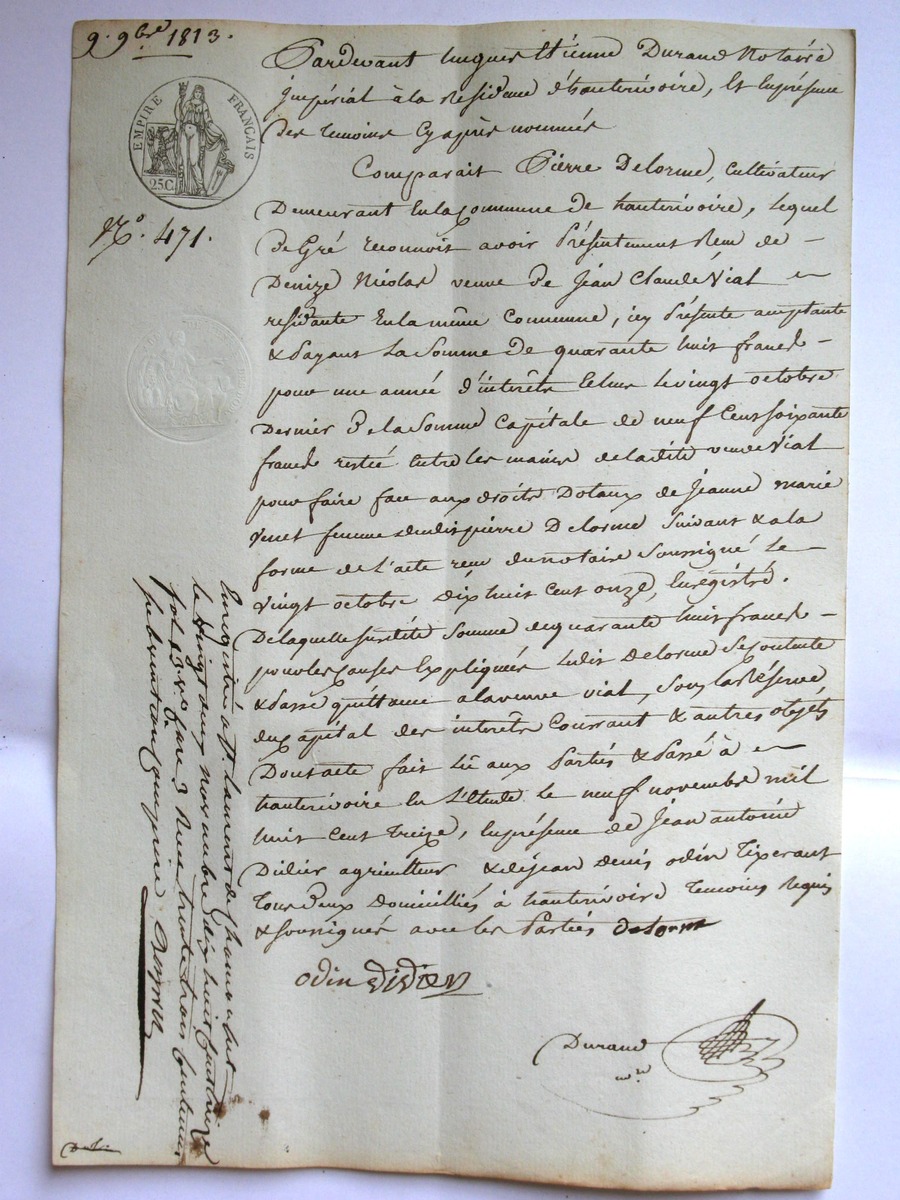 9. 9bre 1813.
EMPIRE FRANÇAIS
25 C.
N.° 471.
Pardevant hugues Etienne Durand Notaire
impérial à la residence d'hauterivoire, et En présence
des temoins Cy après nommés
Comparait Pierre Delorme, Cultivateur
Demeurant En la Commune de hauterivoire, lequel
de Gré reconnoit avoir Présentement Reçu de
Denize Nicolas veuve de Jean Claude Vial
residante En la même Commune, icy Présente acceptante
& Payant La Somme de quarante huit francs
pour une année d'intérêts Echue le vingt octobre
Dernier de la Somme Capitale de neuf Cent soixante
francs restée Entre les mains de ladite veuve Vial
pour faire face aux droits Dotaux de Jeanne marie
femme dudit pierre Delorme suivant & a la
forme de l'acte reçu du notaire soussigné Le
vingt octobre Dix huit Cent onze, Enregistré.
De laquelle susdite Somme de quarante huit francs
pour les Causes Expliquées Ledit Delorme se contente
& Passe quittance a la veuve vial, sous la Réserve
du Capital des interêts Courrant & autres objets
Dont acte fait lû aux Parties & Passé à
hauterivoire En L'Etude Le neuf novembre mil
huit Cent Treize, En présence de Jean antoine
Didier agriculteur & de jean denis odin Tixerant
Tous deux Domiciliés à hauterivoire Temoins Requis
& soussignés avec les Parties Delorme
odin Didier
Durand
nre
Enregistré à St. Laurent de Chamousset
le vingt deux novembre dix huit Cent treize
fol. 23 v.° Case 3 Reçu trente trois Centimes